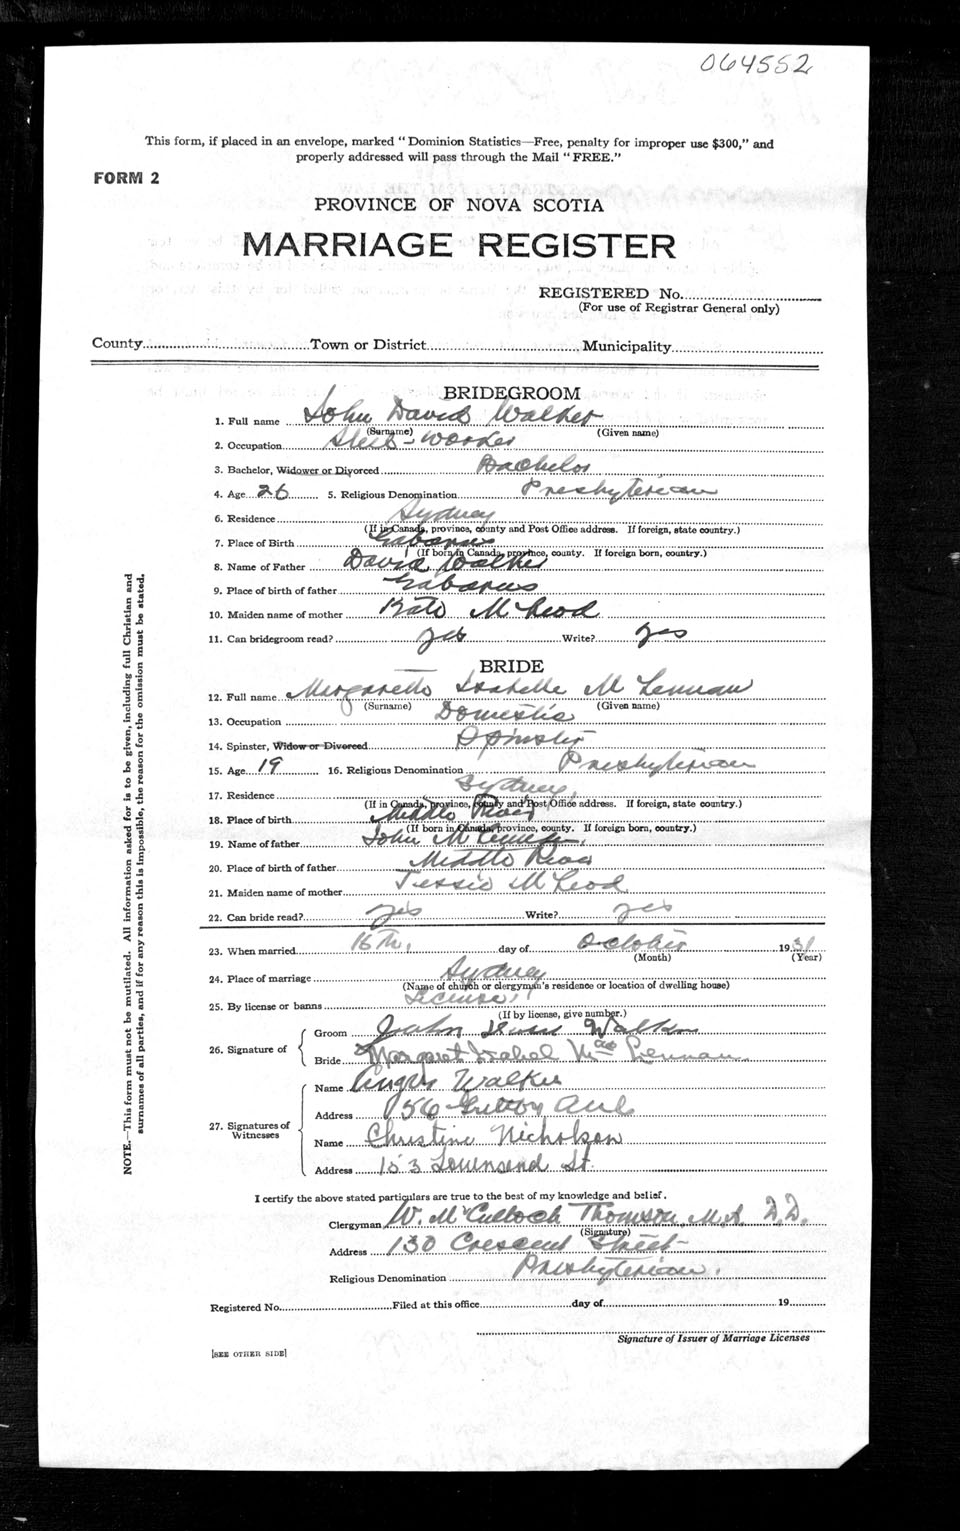 064552
This form, if placed in an envelope, marked "Dominion Statistics—Free, penalty for improper use $300," and
properly addressed will pass through the Mail "FREE."
FORM 2
PROVINCE OF NOVA SCOTIA
MARRIAGE REGISTER
REGISTERED No.
(For use of Registrar General only)
County Town or District Municipality
BRIDEGROOM
1. Full name John David Walker
(Surname) (Given name)
2. Occupation Steel-worker
3. Bachelor, Widower or Divorced Bachelor
4. Age 26 5. Religious Denomination Presbyterian
6. Residence Sydney
(If in Canada, province, county and Post Office address. If foreign, state country.)
7. Place of Birth Gabarus
(If born in Canada, province, county. If foreign born, country.)
8. Name of Father David Walker
9. Place of birth of father Gabarus
10. Maiden name of mother Kate McLeod
11. Can bridegroom read? yes Write? yes
BRIDE
12. Full name Margarette Isabelle McLennan
(Surname) (Given name)
13. Occupation Domestic
14. Spinster, Widow or Divorced Spinster
15. Age 19 16. Religious Denomination Presbyterian
17. Residence Sydney
(If in Canada, province, county and Post Office address. If foreign, state country.)
18. Place of birth Middle River
(If born in Canada, province, county. If foreign born, country.)
19. Name of father John McLennan
20. Place of birth of father Middle River
21. Maiden name of mother Jessie McLeod
22. Can bride read? yes Write? yes
23. When married 16th, day of October 1931
(Month) (Year)
24. Place of marriage Sydney
(Name of church or clergyman's residence or location of dwelling house)
25. By license or banns License
(If by license, give number.)
26. Signature of
Groom John Walker
Bride Margaret Isabel MacLennan
27. Signatures of Witnesses
Name Angus Walker
Address 56 Ave
Name Christine Nicholson
Address 153 Townsend St.
I certify the above stated particulars are true to the best of my knowledge and belief.
Clergyman W. McCulloch Thomson, M.A. D.D.
(Signature)
Address 130 Crescent Street
Religious Denomination Presbyterian.
Registered No. Filed at this office day of 19
Signature of Issuer of Marriage Licenses
[SEE OTHER SIDE]
NOTE.—This form must not be mutilated. All information asked for is to be given, including full Christian and
surnames of all parties, and if for any reason this is impossible, the reason for the omission must be stated.